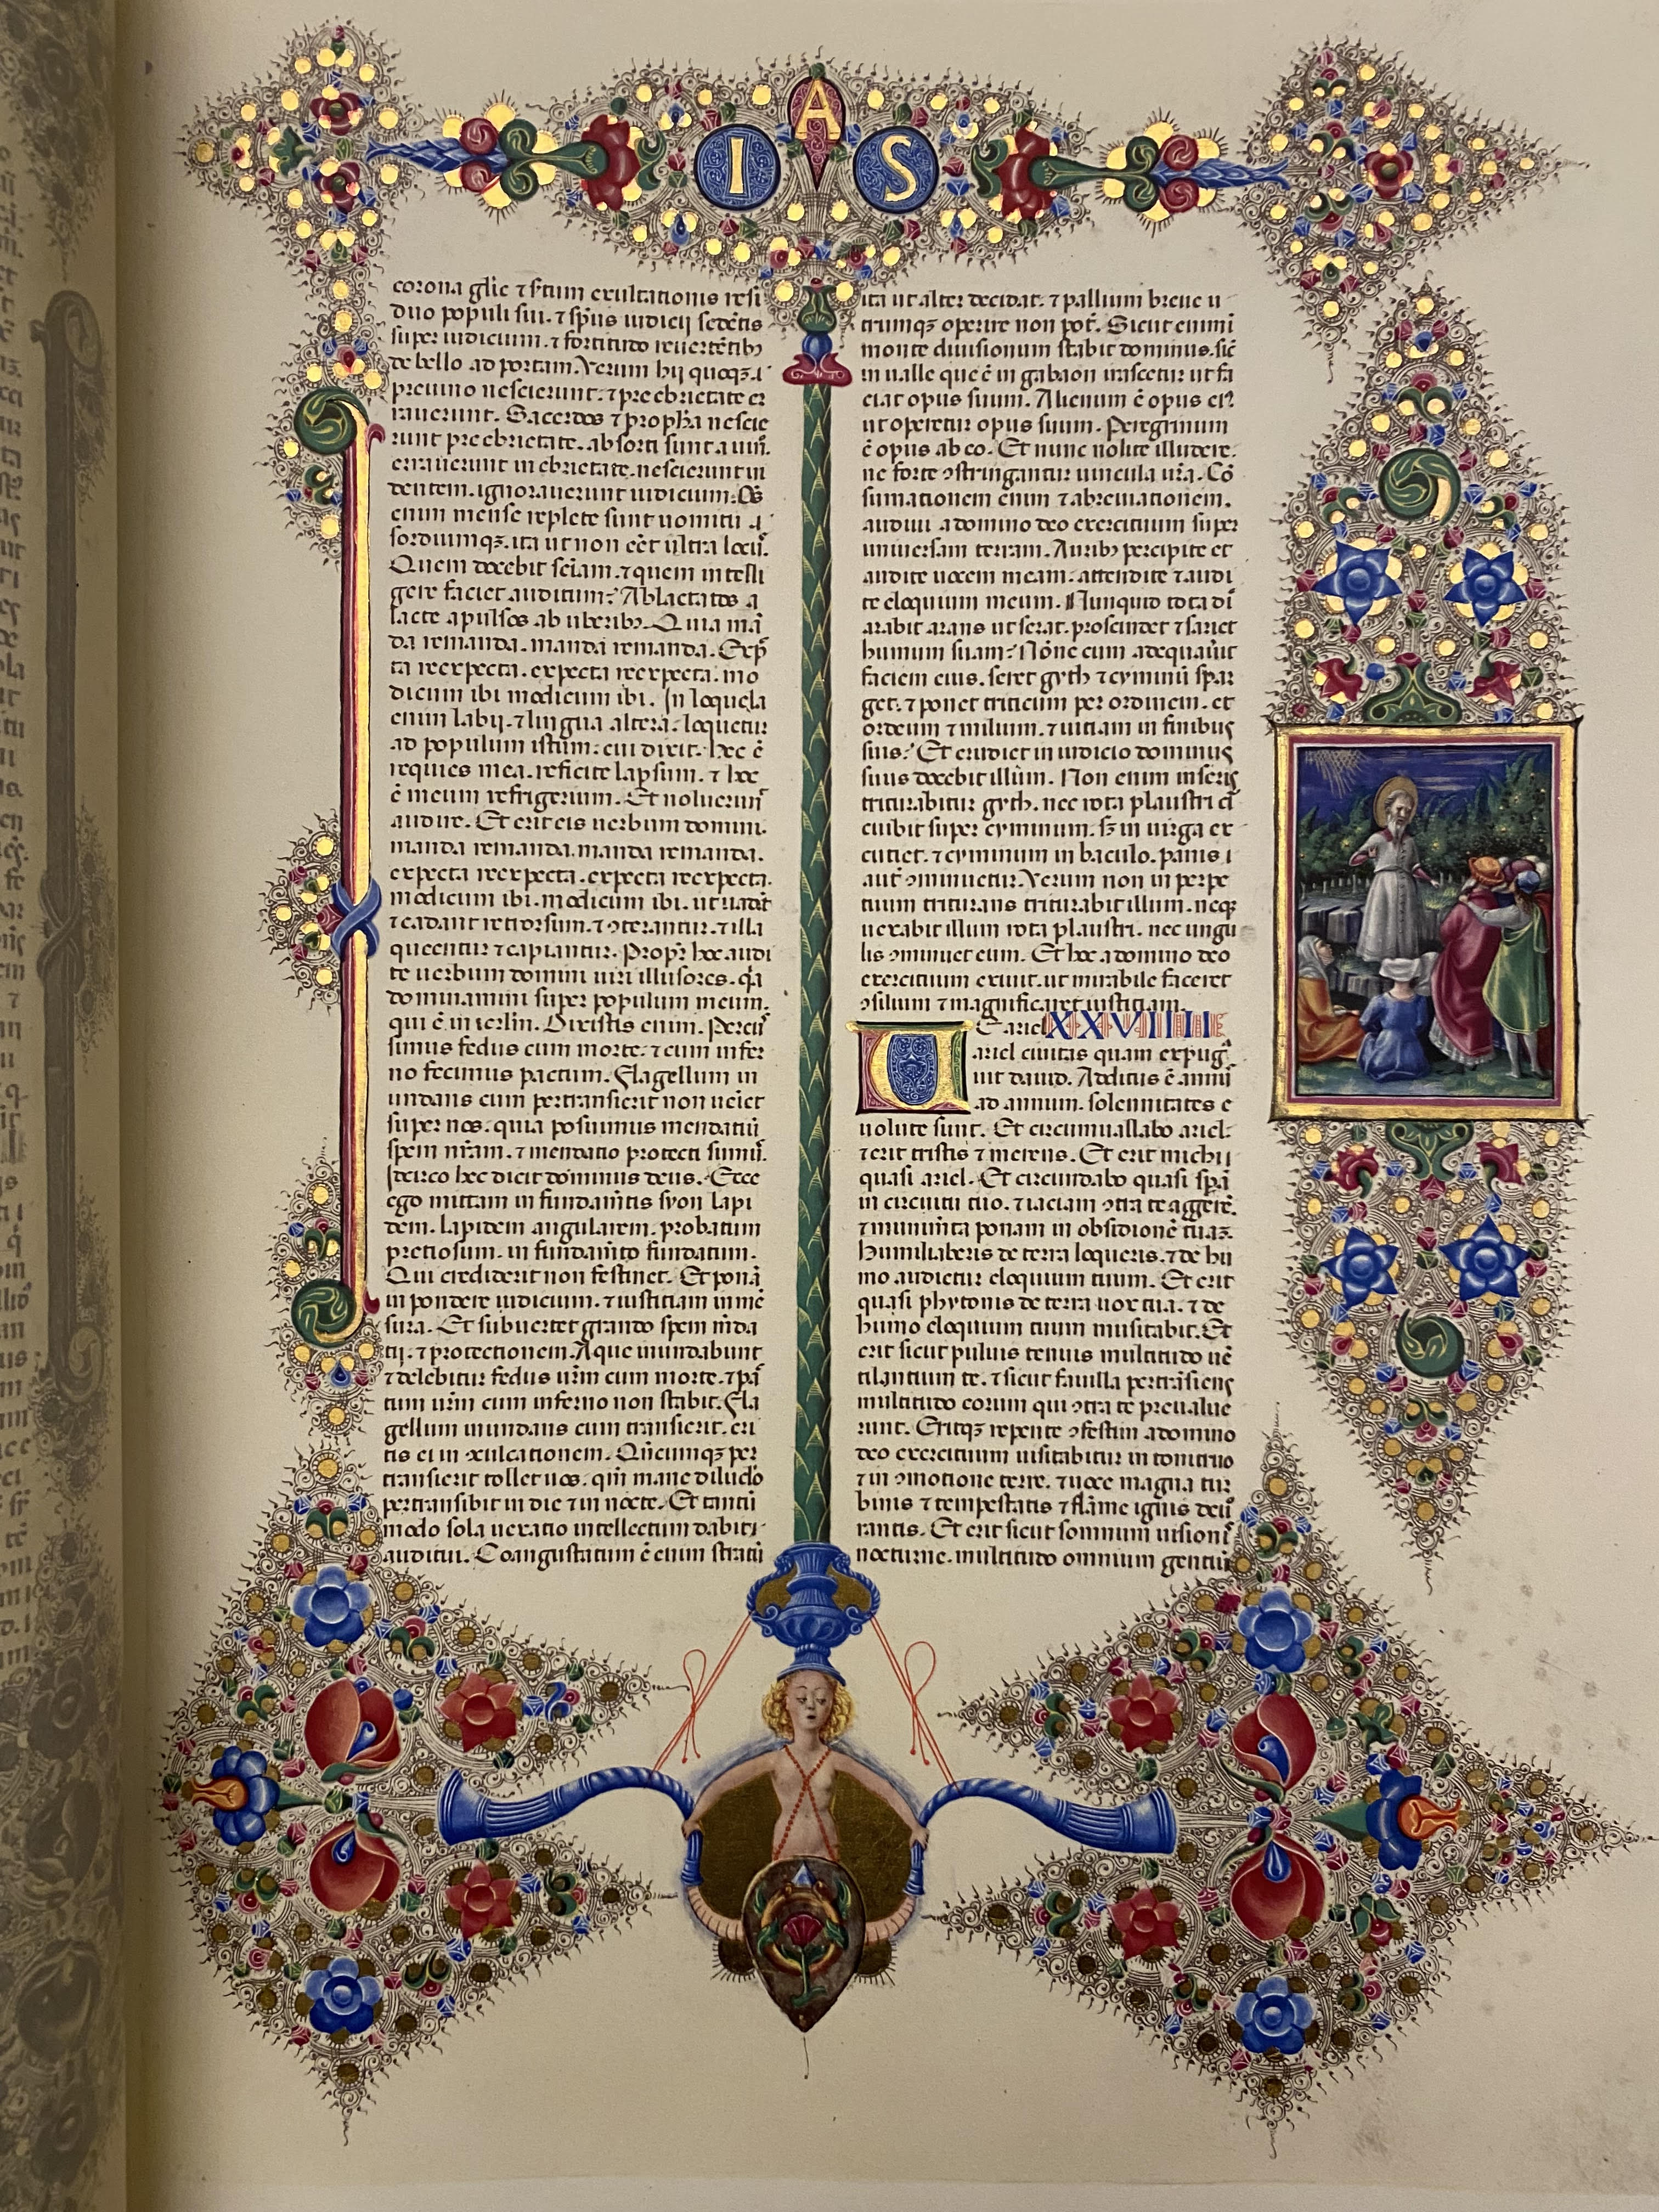 I A S
corona glię ⁊ s̃tum exultationis resi
duo populi sui. ⁊ sp̃us iudicij sedẽtis
super iudicium. ⁊ fortitudo reuertẽtibꝫ
de bello ad portam. Verum hij quoqꝫ. i
preuino nescierunt. ⁊ pre ebrietate er
rauerunt. Sacerdos ⁊ propħa nescie
runt pre ebrietate. absorti sunt a uin̄.
errauerunt in ebrietate. nescierunt ui
dentem. ignorauerunt iudicium. Oс̃s
enim mense replete sunt uomitu. ⁊
sordiumqꝫ. ita ut non eẽt ultra locus̃.
Quem docebit sciam̃. ⁊ quem intelli
gere faciet auditum? Ablactatos a
lacte apulsos ab uberibꝫ. Quia mã
da remanda. manda remanda. Exp̃
ta reexpecta. expecta reexpecta. mo
dicum ibi modicum ibi. In loquela
enim labij. ⁊ lingua altera. loquetur
ad populum istum. cui dixit. hec ẽ
requies mea. reficite lapsum. ⁊ hoc
ẽ meum refrigerium. Et noluerunt̃
audire. Et erit eis uerbum domini.
manda remanda. manda remanda.
expecta reexpecta. expecta reexpecta.
modicum ibi. modicum ibi. ut uadãt
⁊ cadant retrorsum. ⁊ ꝯterantur. ⁊ illa
queentur ⁊ capiantur. Propt̃ hoc audi
te uerbum domini uiri illusores. q̃a
dominamini super populum meum.
qui ẽ in ierl̃m. Dixistis enim. Percus̃
simus fedus cum morte. ⁊ cum infer
no fecimus pactum. Flagellum in
undans cum pertransierit non ueiet
super nos. quia posuimus mendatiũ
spem nr̃am. ⁊ mendatio protecti sumus̃.
Idcirco hec dicit dominus deus. Ecce
ego mittam in fundam̃tis syon lapi
dem. lapidem angularem. probatum
pretiosum. in fundam̃to fundatum.
Qui crediderit non festinet. Et ponã
in pondere iudicium. ⁊ iustitiam in mẽ
sura. Et subuertet grando spem m̃da
tij. ⁊ protectionem. Aque inundabunt
⁊ delebitur fedus ur̃m cum morte. ⁊ pã
tum ur̃m cum inferno non stabit. Fla
gellum inundans cum transierit. eri
tis ei in ꝯculcationem. Quñcumqꝫ per
transierit tollet uos. qm̃ mane diluclo
pertransibit in die ⁊ in nocte. Et tantũ
modo sola uexatio intellectum dabit
auditui. Coangustatum ẽ enim stratũ
ita ut alter decidat. ⁊ pallium breue u
trumqꝫ operire non pot̃. Sicut enim ĩ
monte diuisionum stabit dominus. sic̃
in ualle que ẽ in gabaon irascetur ut fa
ciat opus suum. Alienum ẽ opus ei9.
ut operetur opus suum. Peregrinum
ẽ opus ab eo. Et nunc nolite illudere.
ne forte ꝯstringantur uincula ur̃a. Cõ
sumationem enim ⁊ abreuiationem.
audiui a domino deo exercituum super
uniuersam terram. Auribꝫ percipite et
audite uocem meam. attendite ⁊ audi
te eloquium meum. Nunquid tota di̇̃
arabit arans ut serat. proscindet ⁊ sariet
humum suam? Nõne cum adequaũit
faciem eius. seret gyth ⁊ cyminũ spar
get. ⁊ ponet triticum per ordinem. et
ordeum ⁊ milium. ⁊ uitiam in finibus
suis? Et erudiet in iudicio dominus
suus docebit illum. Non enim in serris
triturabitur gyth. nec rota plaustri cĩ
cuibit super cyminum. s̃ in uirga ex
cutiet. ⁊ cyminum in baculo. panis i
aut̃ ꝯminuetur. Verum non in perpe
tuum triturans triturabit illum. neqꝫ
uexabit illum rota plaustri. nec ungu
lis ꝯminuet eum. Et hoc a domino deo
exercituum exiuit. ut mirabile faceret
ꝯsilium ⁊ magnificaret iustitiam.
E ariel XXVIIII
U ariel ciuitas quam expug̃
uit dauid. Additus ẽ annũ
ad annum. solennitates e
uolute sunt. Et circumuallabo ariel.
⁊ erit tristis ⁊ merens. Et erit michi
quasi ariel. Et circundabo quasi sp̃a
in circuitu tuo. ⁊ iaciam ꝯtra te aggerẽ.
⁊ munim̃ta ponam in obsidionẽ tuaz.
Humiliaberis de terra loqueris. ⁊ de hu
mo audietur eloquium tuum. Et erit
quasi phytonis de terra uox tua. ⁊ de
humo eloquium tuum musitabit. Et
erit sicut puluis tenuis multitudo uẽ
tilantium te. ⁊ sicut fauilla pertrãsiens
multitudo eorum qui ꝯtra te preualue
runt. Eritqꝫ repente ꝯfestim a domino
deo exercituum uisitabitur in tonitruo
⁊ in ꝯmotione terre. ⁊ uoce magna tur
binis ⁊ tempestatis ⁊ flãme ignis deuo
rantis. Et erit sicut somnium uisionis̃
nocturne. multitudo omnium gentiũ